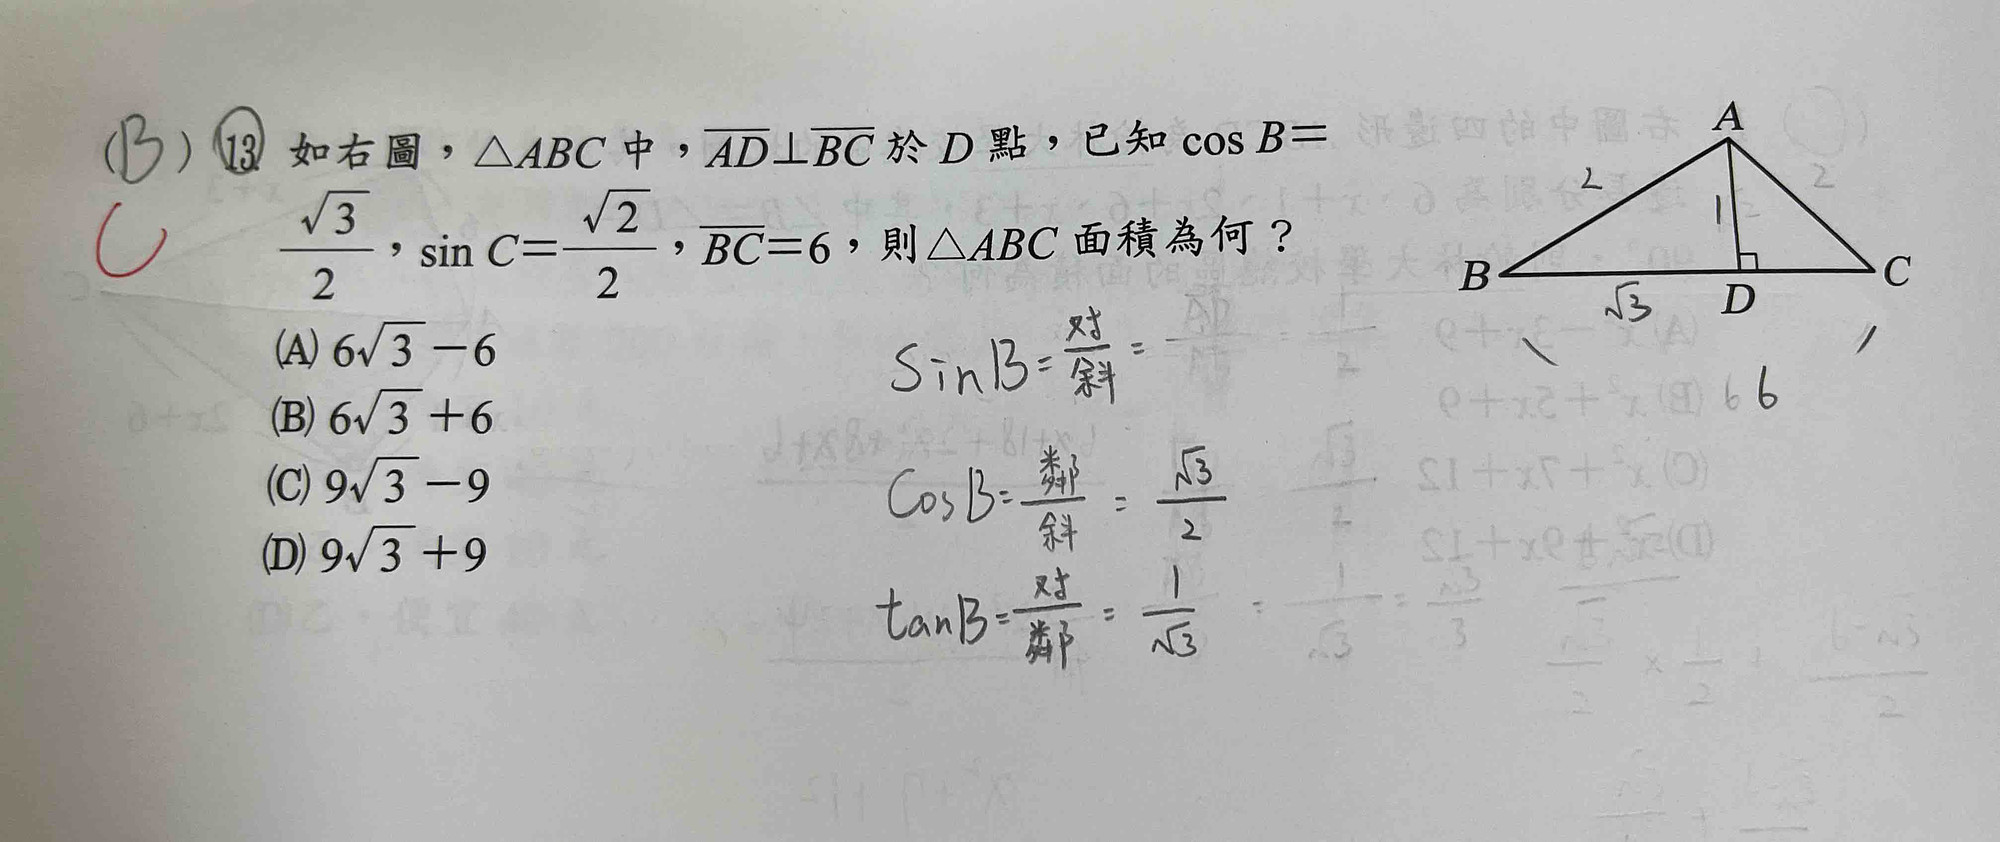 (B) 13 如右圖，△ABC 中，AD⊥BC 於 D 點，已知 cos B=
√3/2，sin C=√2/2，BC=6，則△ABC 面積為何？
C
(A) 6√3－6
(B) 6√3＋6
(C) 9√3－9
(D) 9√3＋9
A
2
2
1
B
C
√3
D
6 6
sinB=对/斜=
cosB=鄰/斜=√3/2
tanB=对/鄰=1/√3